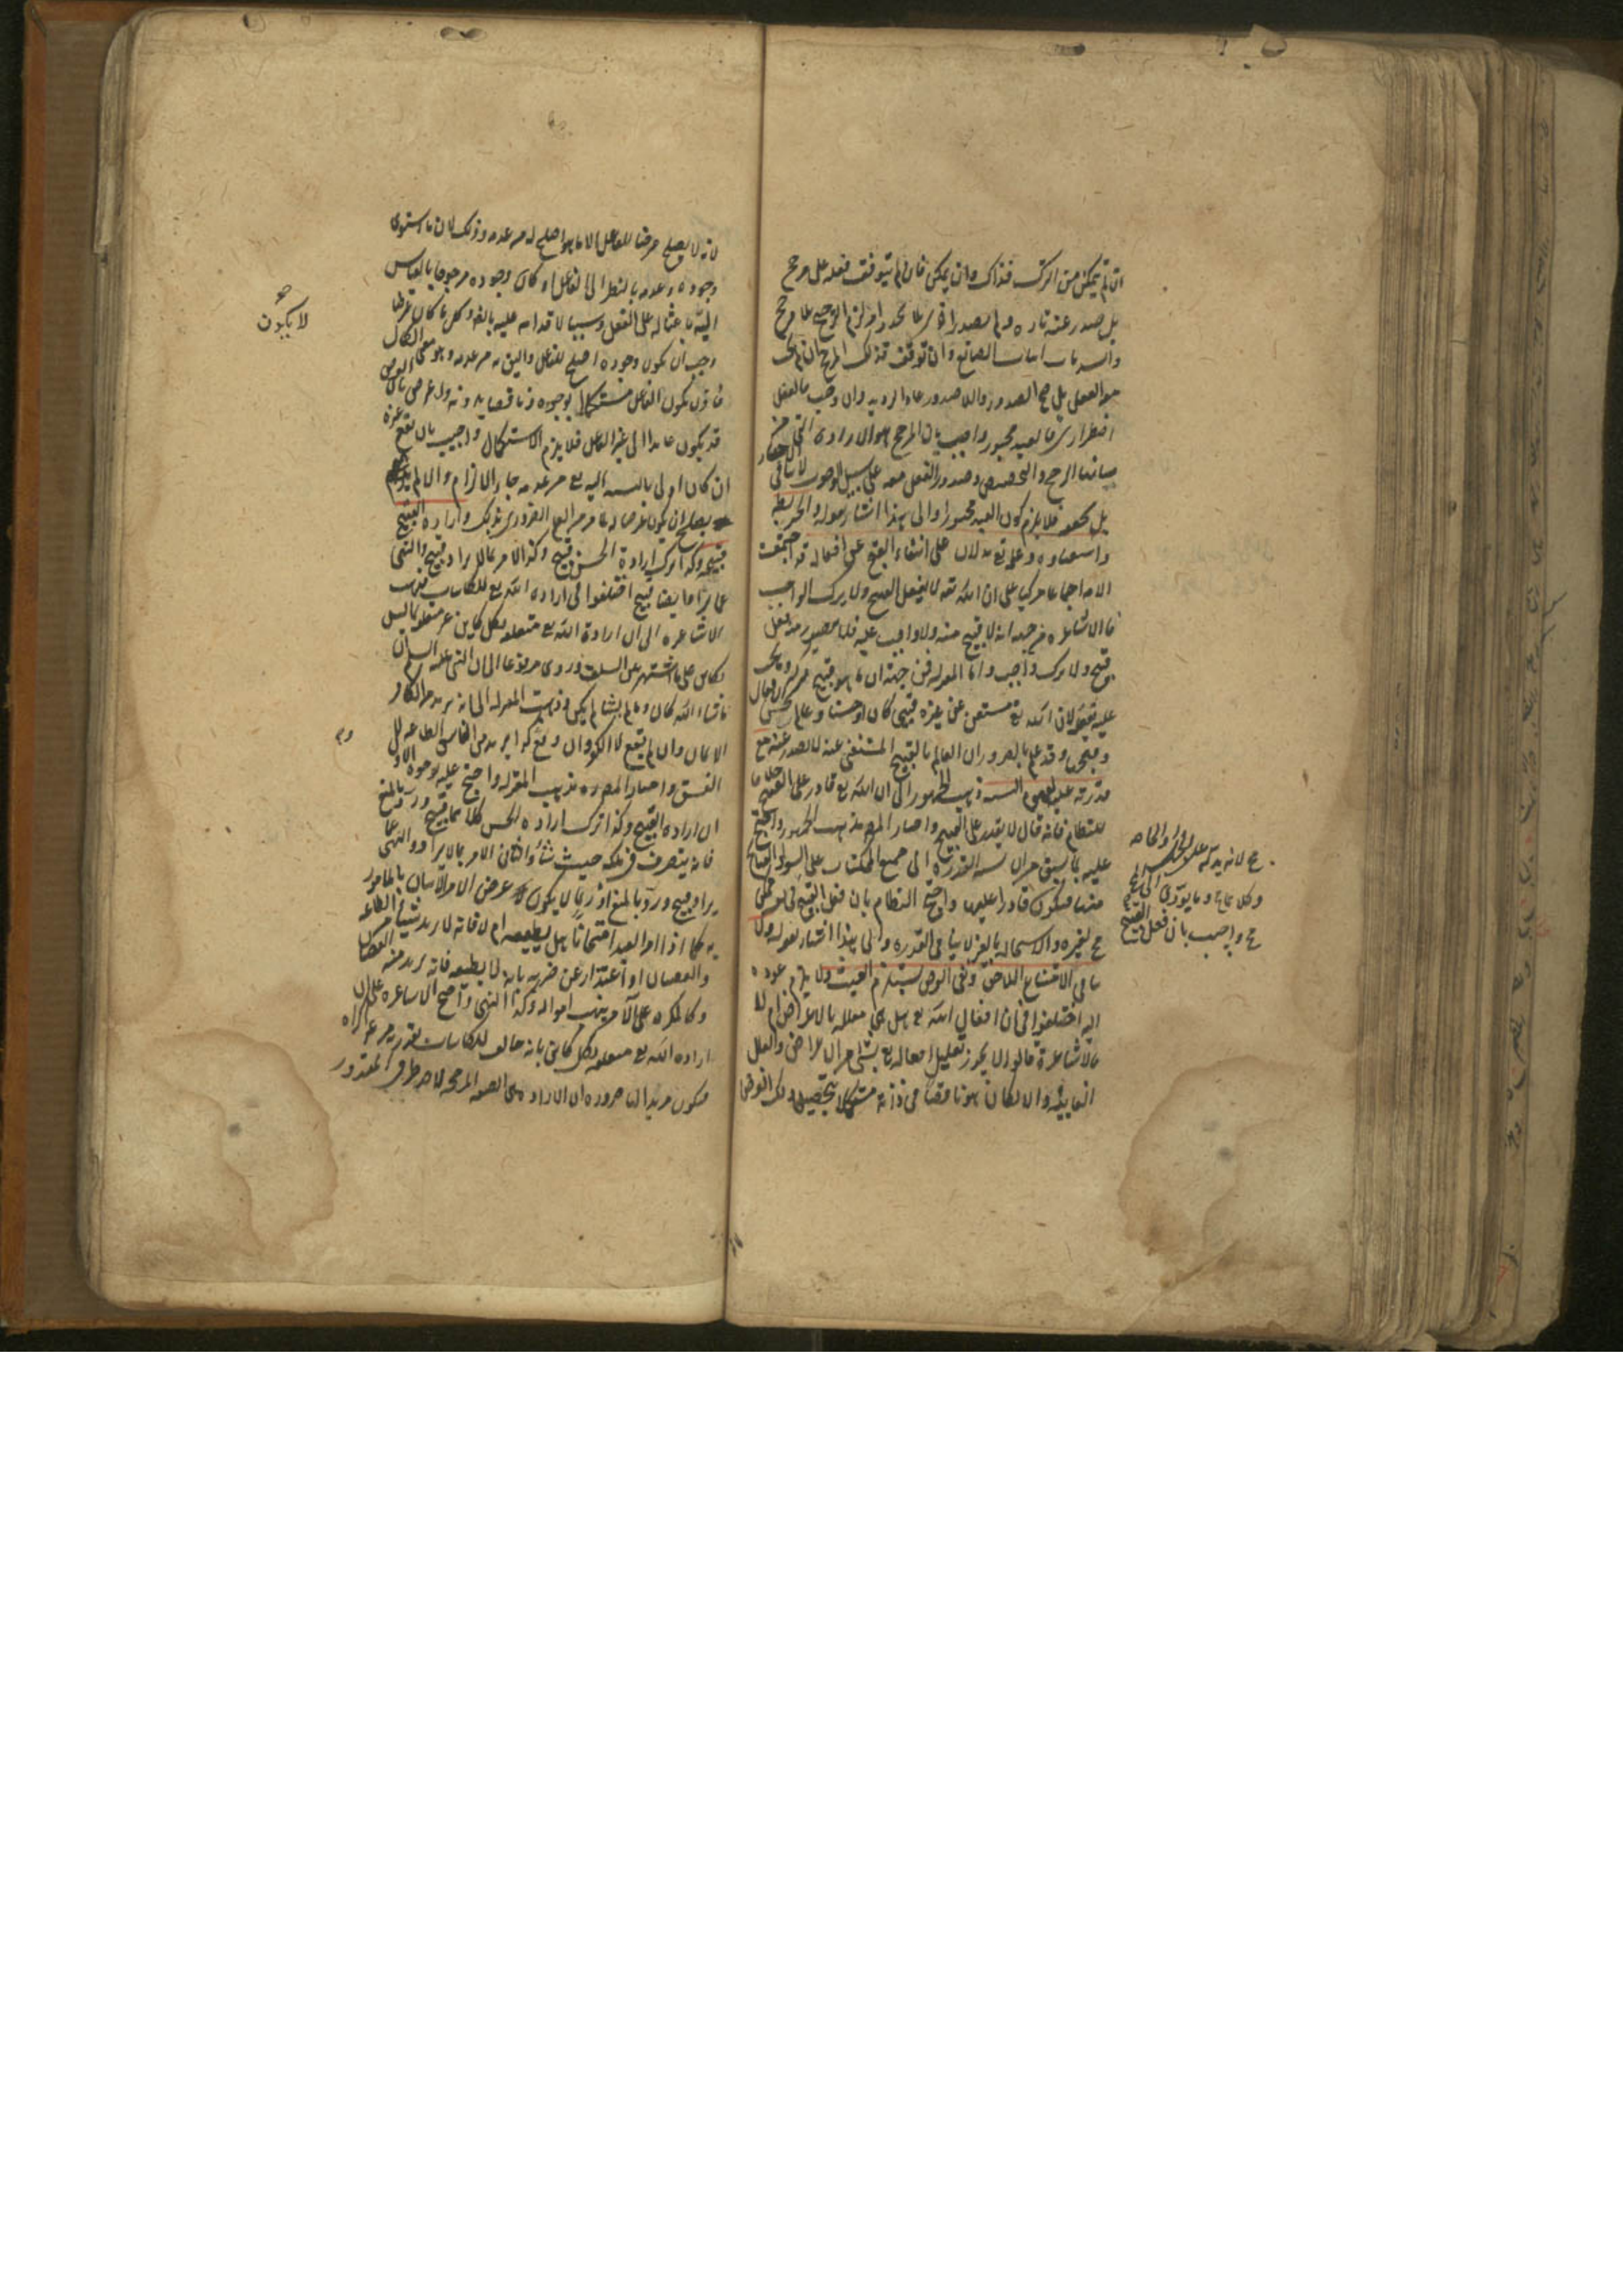 ان لم يتمكن من الترك فذاك وان يمكن فان لم يتوقف فعله على مرجح
بل صدر عنه تارة ولم يصدر اخرى لزم الترجيح بلا مرجح
وانسد باب اثبات الصانع وان توقف فذلك المرجح ان لم يجب
معه الفعل بل صح الصدور واللاصدور عاد الترديد وان وجب فالفعل
اضطراري فالعبد مجبور واجيب بان المرجح هو الارادة التي من
شانها الترجيح والتخصيص وصدور الفعل معه على سبيل الوجوب لا ينافي الاختيار
بل يحققه فلا يلزم كون العبد مجبورا والى هذا اشار بقوله والمرجح
واستغناؤه وعلمه تع يدلان على انتفاء القبح عن افعاله قد اجتمعت
الامة اجماعا مركبا على ان الله تعه لا يفعل القبيح ولا يترك الواجب
فالاشاعرة من جهة انه لا قبيح منه ولا واجب عليه فلا يتصور منه فعل
قبيح ولا ترك واجب واما المعتزلة فمن جهة ان ما هو قبيح يتركه وما يجب
عليه يفعله لان الله تع مستغن عن غيره قبيحا كان او حسنا وعالم بحسن الافعال
وقبحها وقد علم بالضرورة ان العالم بالقبيح المستغني عنه لا يصدر عنه مع
قدرته عليه لعموم النسبة ذهب الجمهور الى ان الله تع قادر على القبيح خلافا
للنظام فانه قال لا يقدر على القبيح واختار المص مذهب الجمهور واحتج
عليه بما سبق من ان نسبة القدرة الى جميع الممكنات على السواء والقبائح
منها فيكون قادرا عليها واحتج النظام بان فعل القبيح
مح لغيره والاستحالة بالغير لا ينافي القدرة والى هذا اشار بقوله ولا
ينافي الامتناع اللاحق ونفي الغرض يستلزم العبث ولا يلزم عوده
اليه اختلفوا في ان افعال الله تع هل هي معللة بالاغراض ام لا
فالاشاعرة قالوا لا يجوز تعليل افعاله تع بشيء من الاغراض والعلل
الغائية والا لكان هو ناقصا في ذاته مستكملا بتحصيل ذلك الغرض
مح لانه يدل على الجهل او الحاجة
وكلاهما مح وما يؤدي الى المح
مح واجيب بان فعل القبيح
لانه لا يصلح غرضا للفاعل الا ما هو اصلح له من عدمه وذلك لان ما استوى
وجوده وعدمه بالنظر الى الفاعل او كان وجوده مرجوحا بالقياس
اليه لا يكون باعثا له على الفعل وسببا لاقدامه عليه بالضرورة وكل ما كان غرضا
وجب ان يكون وجوده اصلح للفاعل واليق به من عدمه وهو معنى الكمال
فاذن يكون الفاعل مستكملا بوجوده وناقصا بدونه ولد الغرض
قد يكون عائدا الى غير الفاعل فلا يلزم الاستكمال واجيب بان نفع غيره
ان كان اولى بالنسبة اليه تع من عدمه جاء الالزام والا لم
يصلح ان يكون غرضا له لما مر من العلم الضروري بذلك وارادة القبيح
قبيحة وكذا ترك ارادة الحسن قبيح وكذا الامر بما لا يراد قبيح والنهي
عما يراد ايضا قبيح اختلفوا في ارادة الله تع للكائنات فذهب
الاشاعرة الى ان ارادة الله تع متعلقة بكل كائن غير متعلقة بما ليس
بكائن على ما اشتهر من السلف وروي مرفوعا الى النبي عليه السلام ان
ما شاء الله كان وما لم يشا لم يكن وذهبت المعتزلة الى انه يريد من الكافر
الايمان وان لم يقع لا الكفر وان وقع وكذا يريد من الفاسق الطاعة لا
الفسق واختار المص مذهب المعتزلة واحتج عليه بوجوه الاول
ان ارادة القبيح وكذا ترك ارادة الحسن كلاهما قبيح ورد بالمنع
فانه يتصرف في ملكه حيث شاء والثاني الامر بما لا يراد والنهي عما
يراد قبيح ورد بالمنع اذ ربما لا يكون غرض الامر الاتيان بالمامور
به كما اذا امر العبد امتحانا هل يطيعه ام لا فانه لا يريد شيئا من الطاعة
والعصيان او اعتذارا عن ضربه بانه لا يطيعه فانه يريد منه العصيان
وكالمكره على الامر بنهب امواله وكذا النهي واحتج الاشاعرة على ان
ارادة الله تع متعلقة بكل كائن بانه خالق للكائنات بقدرته من غير اكراه
فيكون مريدا لها ضرورة ان الارادة هي الصفة المرجحة لاحد طرفي المقدور
لا يكون